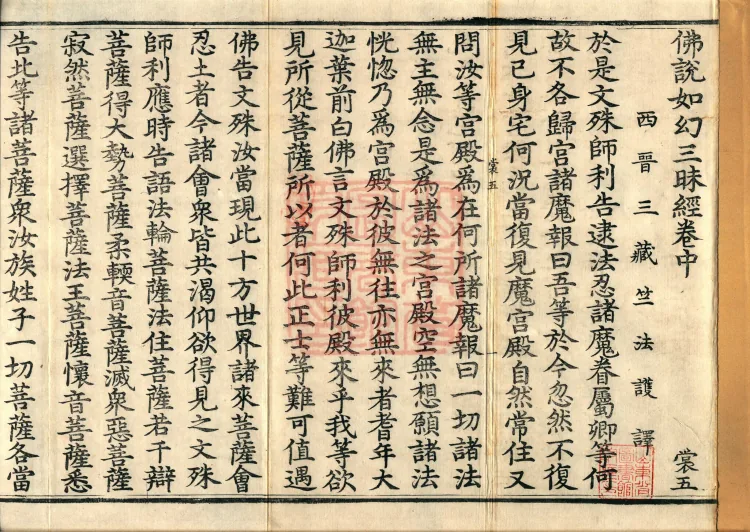 佛說如幻三昧經卷中 裳五
西晉三藏竺法護譯
於是文殊師利告逮法忍諸魔眷屬卿等何
故不各歸宮諸魔報曰吾等於今忽然不復
見已身宅何況當復見魔宮殿自然常住又
問汝等宮殿為在何所諸魔報曰一切諸法
無主無念是為諸法之宮殿空無想願諸法
恍惚乃為宮殿於彼無往亦無來者耆年大
裳五
迦葉前白佛言文殊師利彼殿來乎我等欲
見所從菩薩所以者何此正士等難可值遇
佛告文殊汝當現此十方世界諸來菩薩會
忍土者今諸會衆皆共渴仰欲得見之文殊
師利應時告語法輪菩薩法住菩薩若干辯
菩薩得大勢菩薩柔輭音菩薩滅衆惡菩薩
寂然菩薩選擇菩薩法王菩薩懷音菩薩悉
告此等諸菩薩衆汝族姓子一切菩薩各當